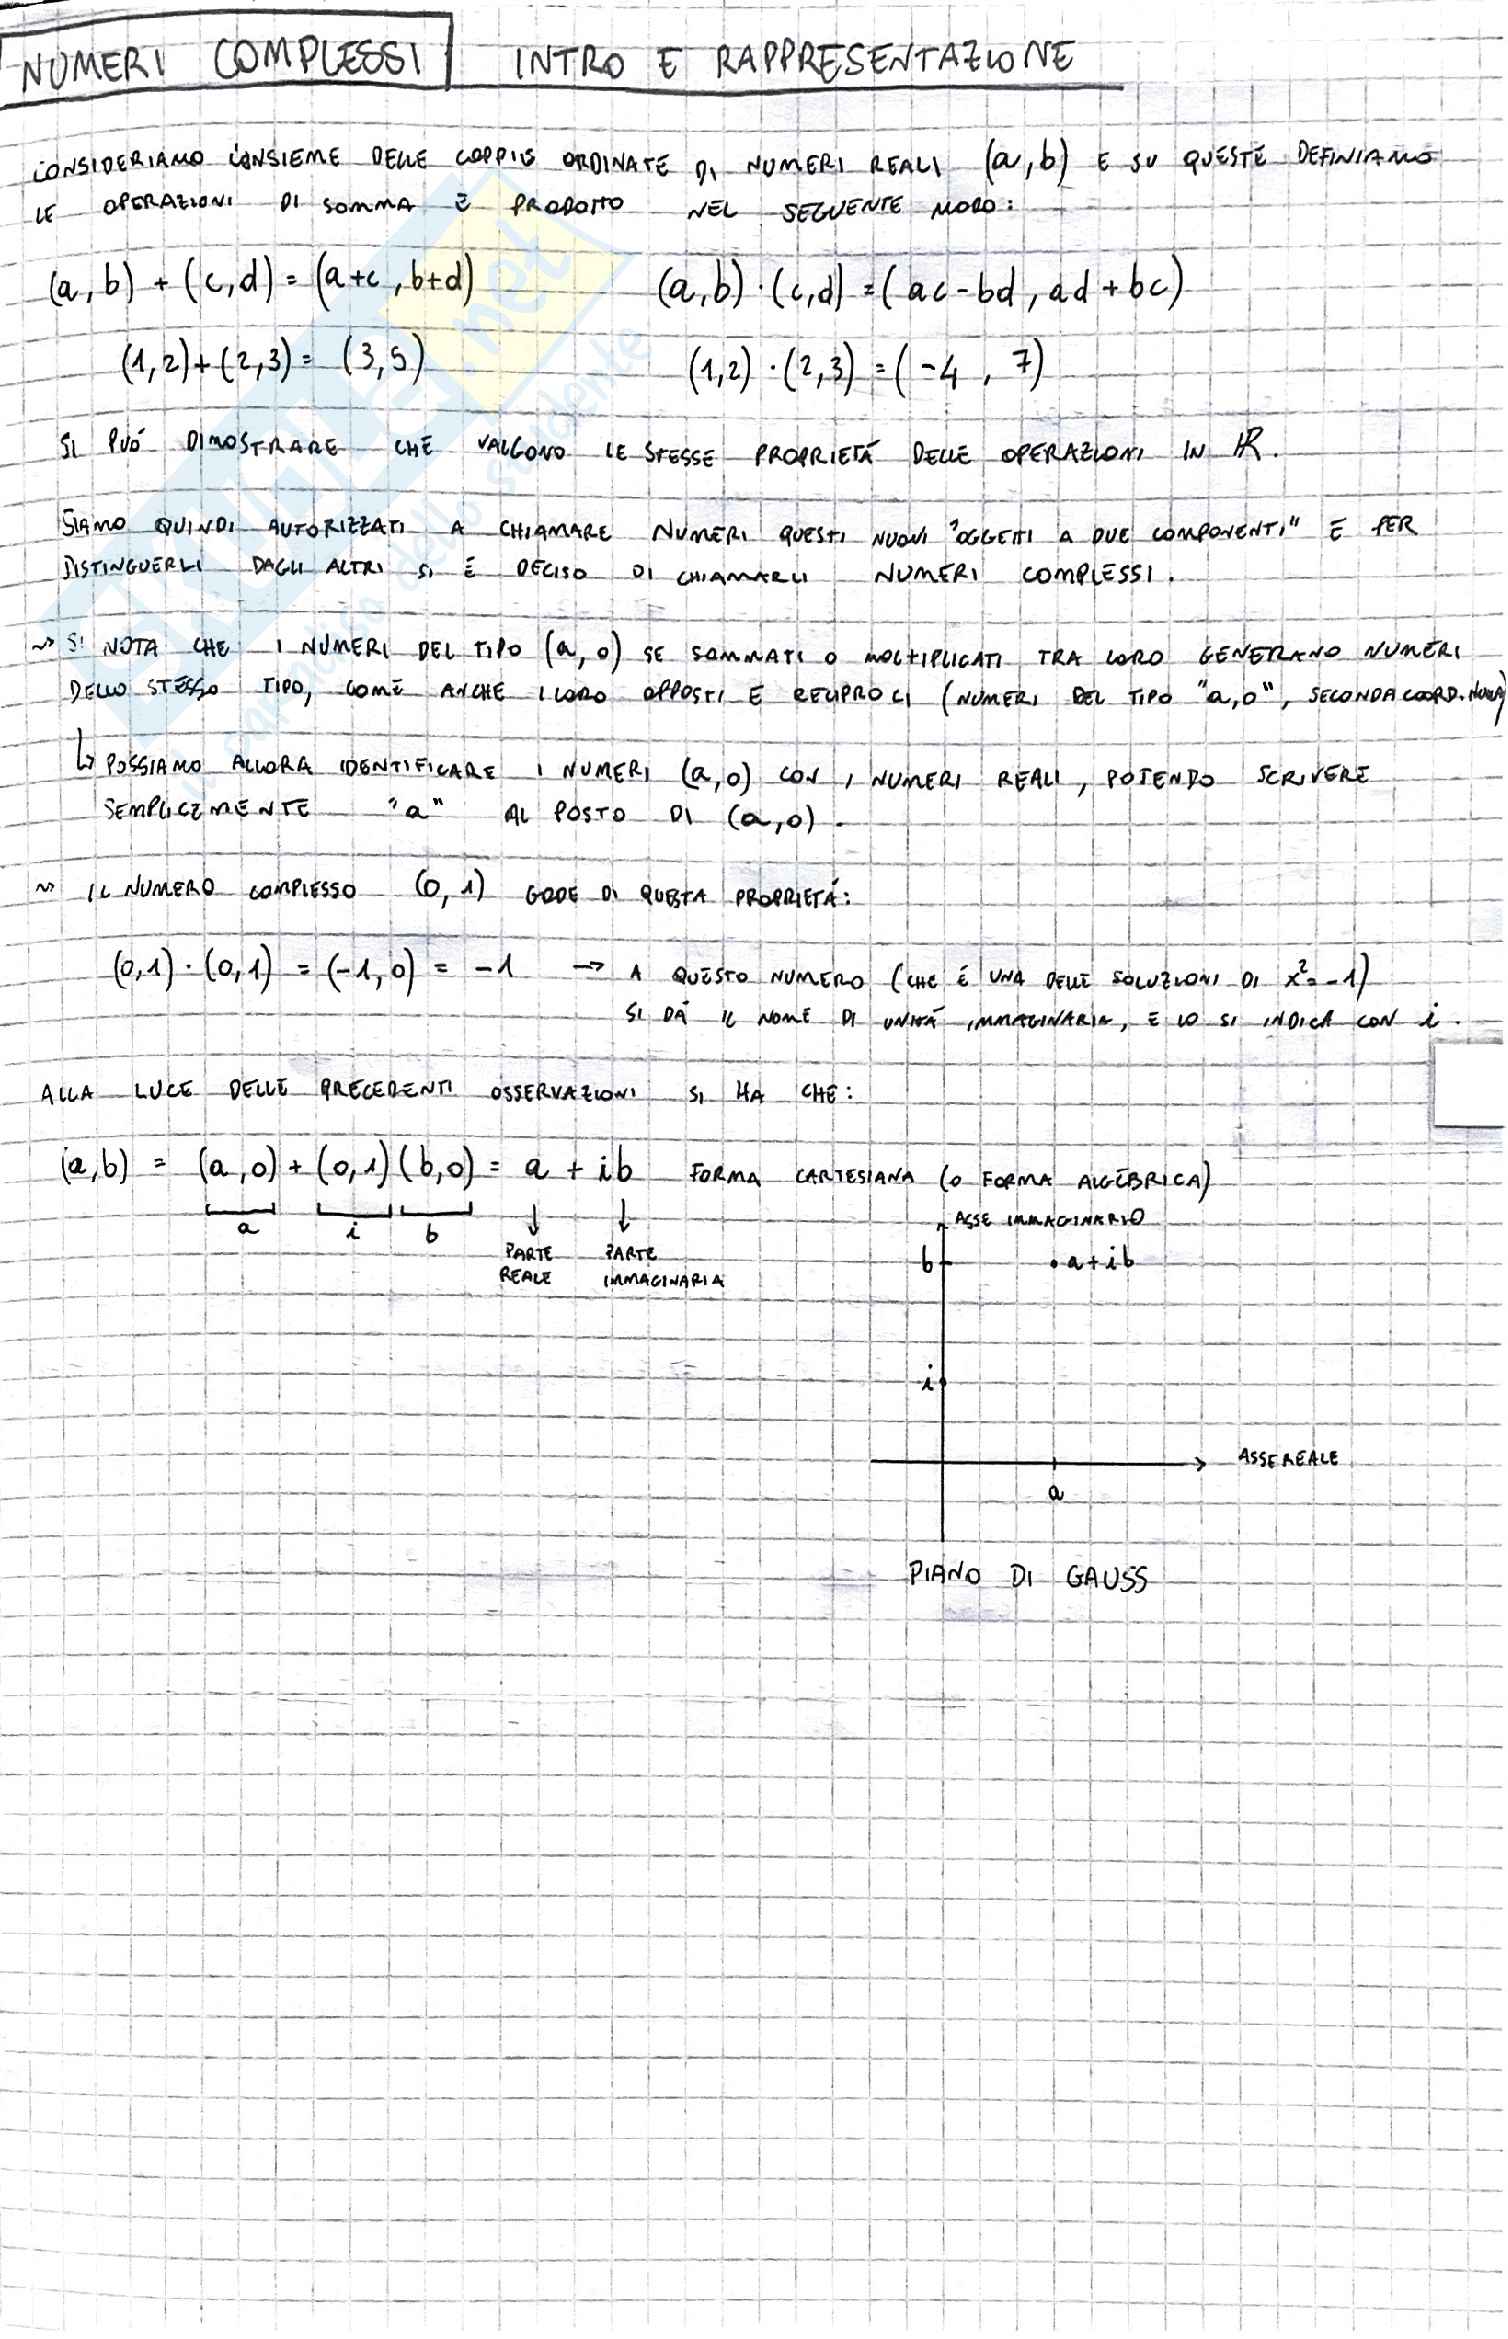 NUMERI COMPLESSI INTRO E RAPPRESENTAZIONE
CONSIDERIAMO L'INSIEME DELLE COPPIE ORDINATE DI NUMERI REALI (a,b) E SU QUESTE DEFINIAMO
LE OPERAZIONI DI SOMMA E PRODOTTO NEL SEGUENTE MODO:
(a,b) + (c,d) = (a+c, b+d) (a,b) · (c,d) = (ac-bd, ad+bc)
(1,2)+(2,3) = (3,5) (1,2) · (2,3) = (-4, 7)
SI PUÓ DIMOSTRARE CHE VALGONO LE STESSE PROPRIETÁ DELLE OPERAZIONI IN ℝ.
SIAMO QUINDI AUTORIZZATI A CHIAMARE NUMERI QUESTI NUOVI "OGGETTI A DUE COMPONENTI" E PER
DISTINGUERLI DAGLI ALTRI SI É DECISO DI CHIAMARLI NUMERI COMPLESSI.
~> SI NOTA CHE I NUMERI DEL TIPO (a,0) SE SOMMATI O MOLTIPLICATI TRA LORO GENERANO NUMERI
DELLO STESSO TIPO, COME ANCHE I LORO OPPOSTI E RECIPROCI (NUMERI DEL TIPO "a,0", SECONDA COORD. NULLA)
↳ POSSIAMO ALLORA IDENTIFICARE I NUMERI (a,0) CON I NUMERI REALI, POTENDO SCRIVERE
SEMPLICEMENTE "a" AL POSTO DI (a,0).
~> IL NUMERO COMPLESSO (0,1) GODE DI QUESTA PROPRIETÁ:
(0,1) · (0,1) = (-1,0) = -1 → A QUESTO NUMERO (CHE É UNA DELLE SOLUZIONI DI x²=-1)
SI DÁ IL NOME DI UNITÁ IMMAGINARIA, E LO SI INDICA CON i.
ALLA LUCE DELLE PRECEDENTI OSSERVAZIONI SI HA CHE:
(a,b) = (a,0) + (0,1)(b,0) = a + ib FORMA CARTESIANA (O FORMA ALGEBRICA)
a i b ↓ ↓
PARTE REALE PARTE IMMAGINARIA
ASSE IMMAGINARIO
b a+ib
i
ASSE REALE
a
PIANO DI GAUSS